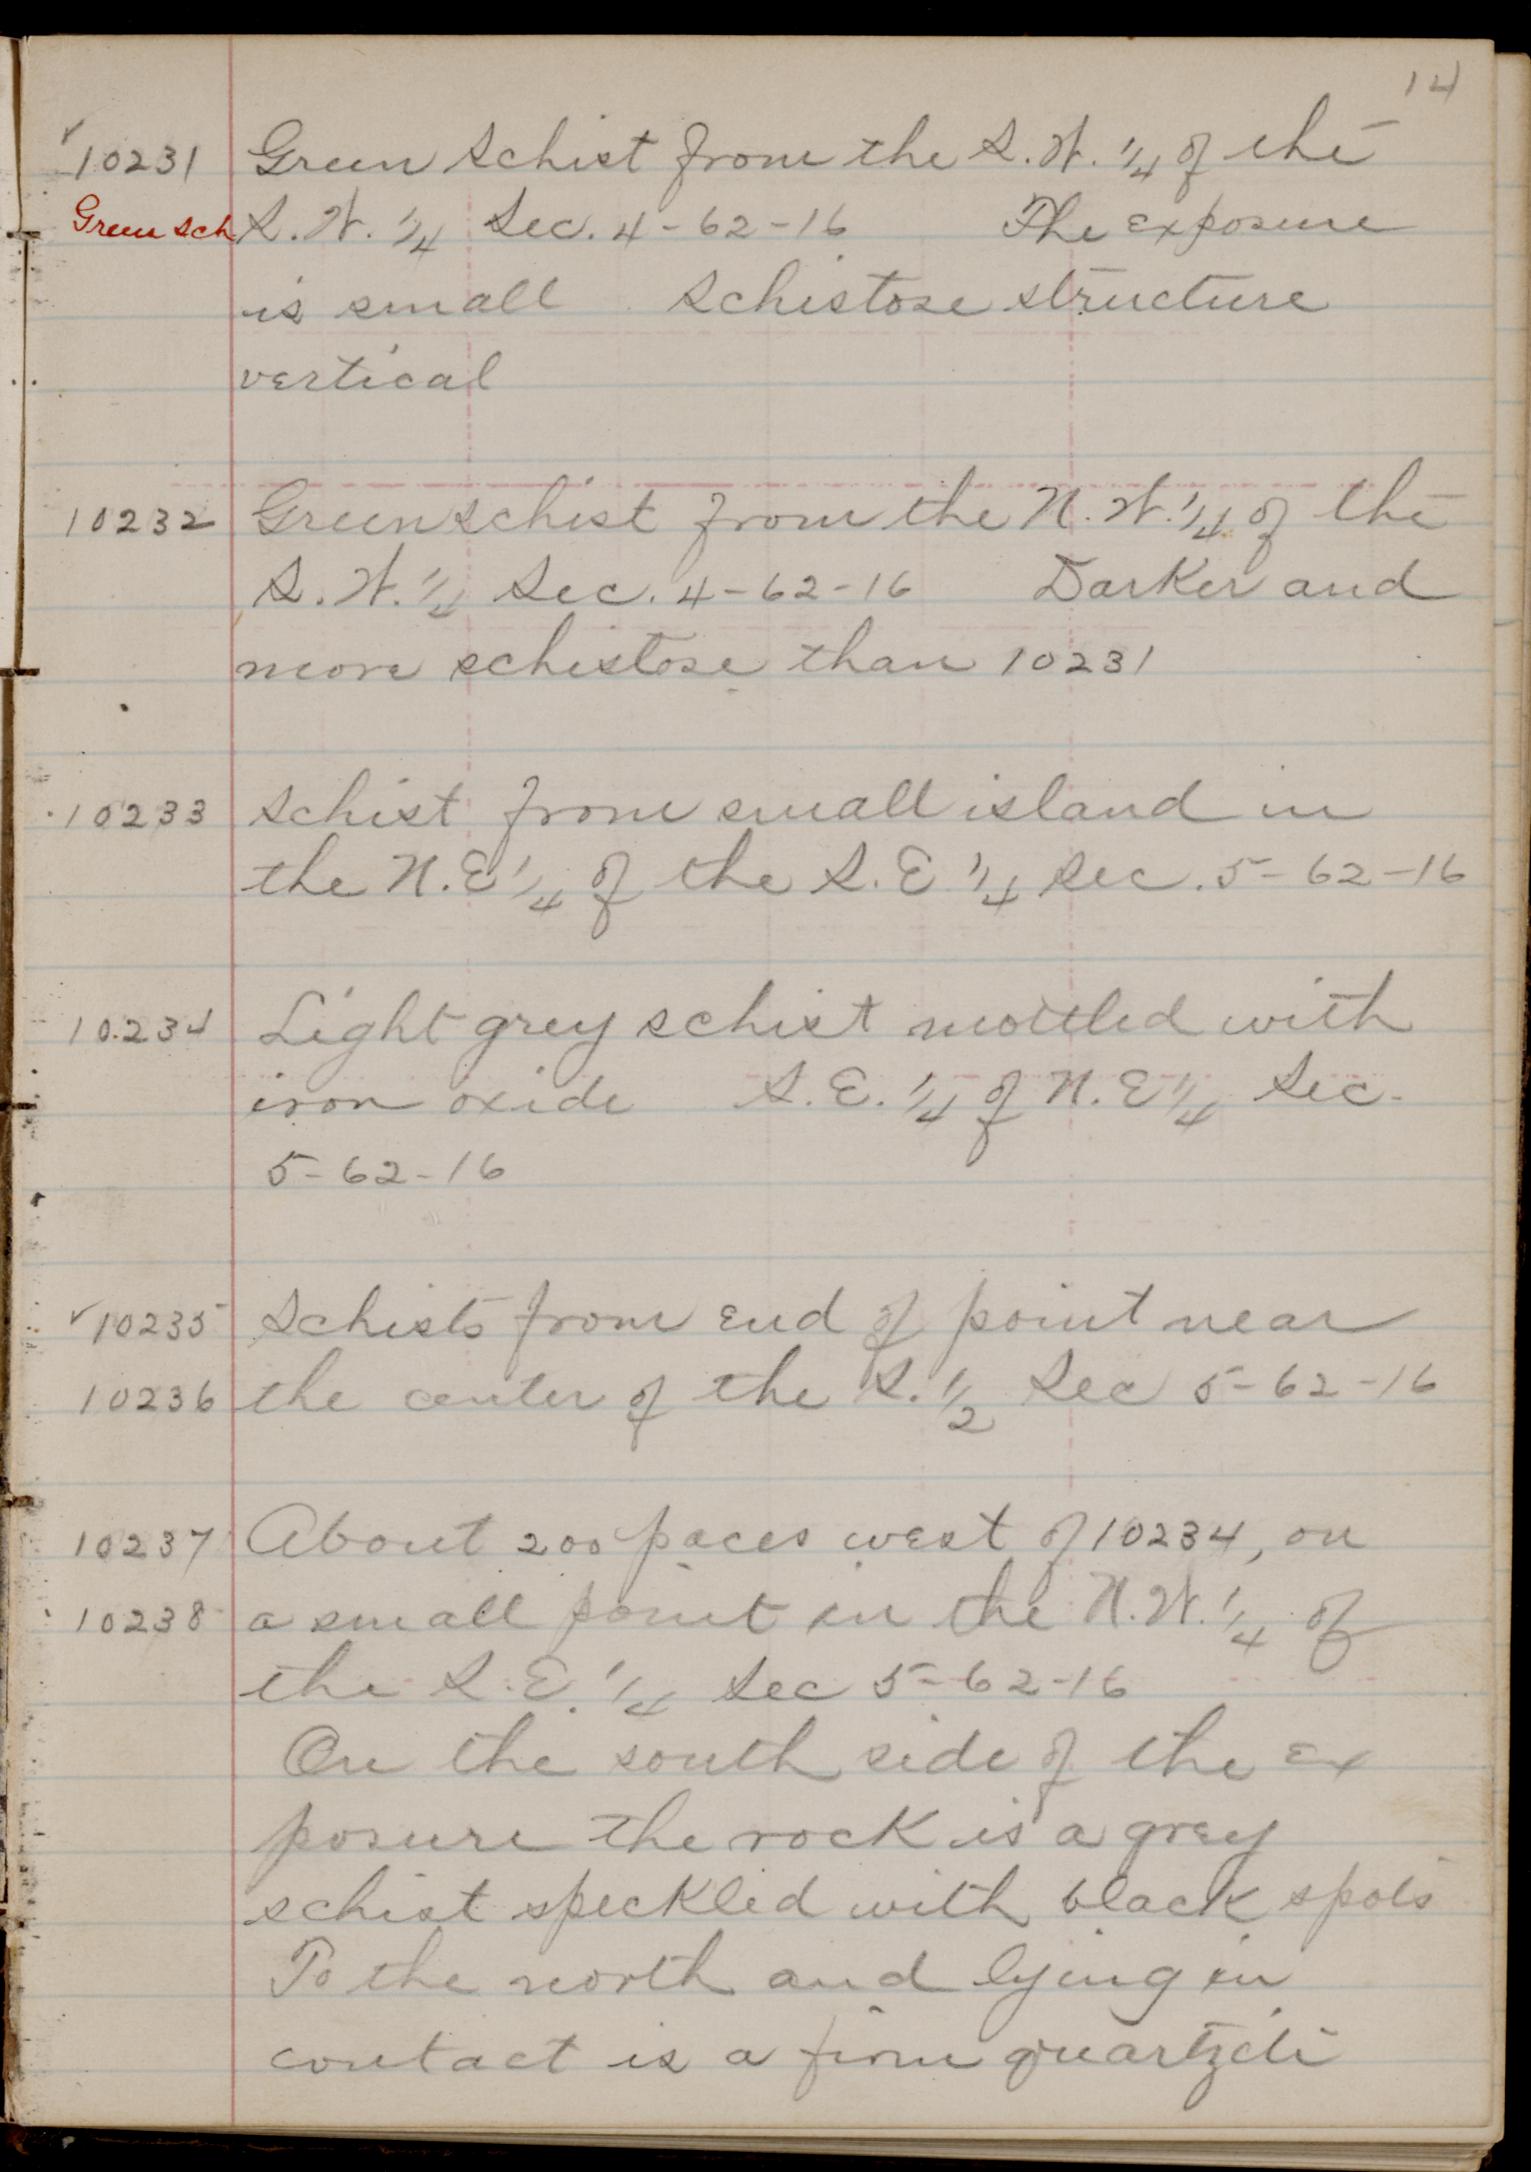 14
✓ 10231 Green schist from the S.W. 1/4 of the
Green sch S.W. 1/4 Sec. 4-62-16 The exposure
is small Schistose structure
vertical
10232 Greenschist from the N.W. 1/4 of the
S.W. 1/4 Sec. 4-62-16 Darker and
more schistose than 10231
10233 Schist from small island in
the N.E 1/4 of the S.E 1/4 Sec. 5-62-16
10234 Light grey schist mottled with
iron oxide S.E. 1/4 of N.E 1/4 Sec.
5-62-16
✓ 10235 Schists from end of point near
10236 the center of the S. 1/2 Sec 5-62-16
10237 About 200 paces west of 10234, on
10238 a small point in the N.W. 1/4 of
the S.E. 1/4 Sec 5-62-16
On the south side of the ex
posure the rock is a grey
schist speckled with black spots
To the north and lying in
contact is a firm quartzite